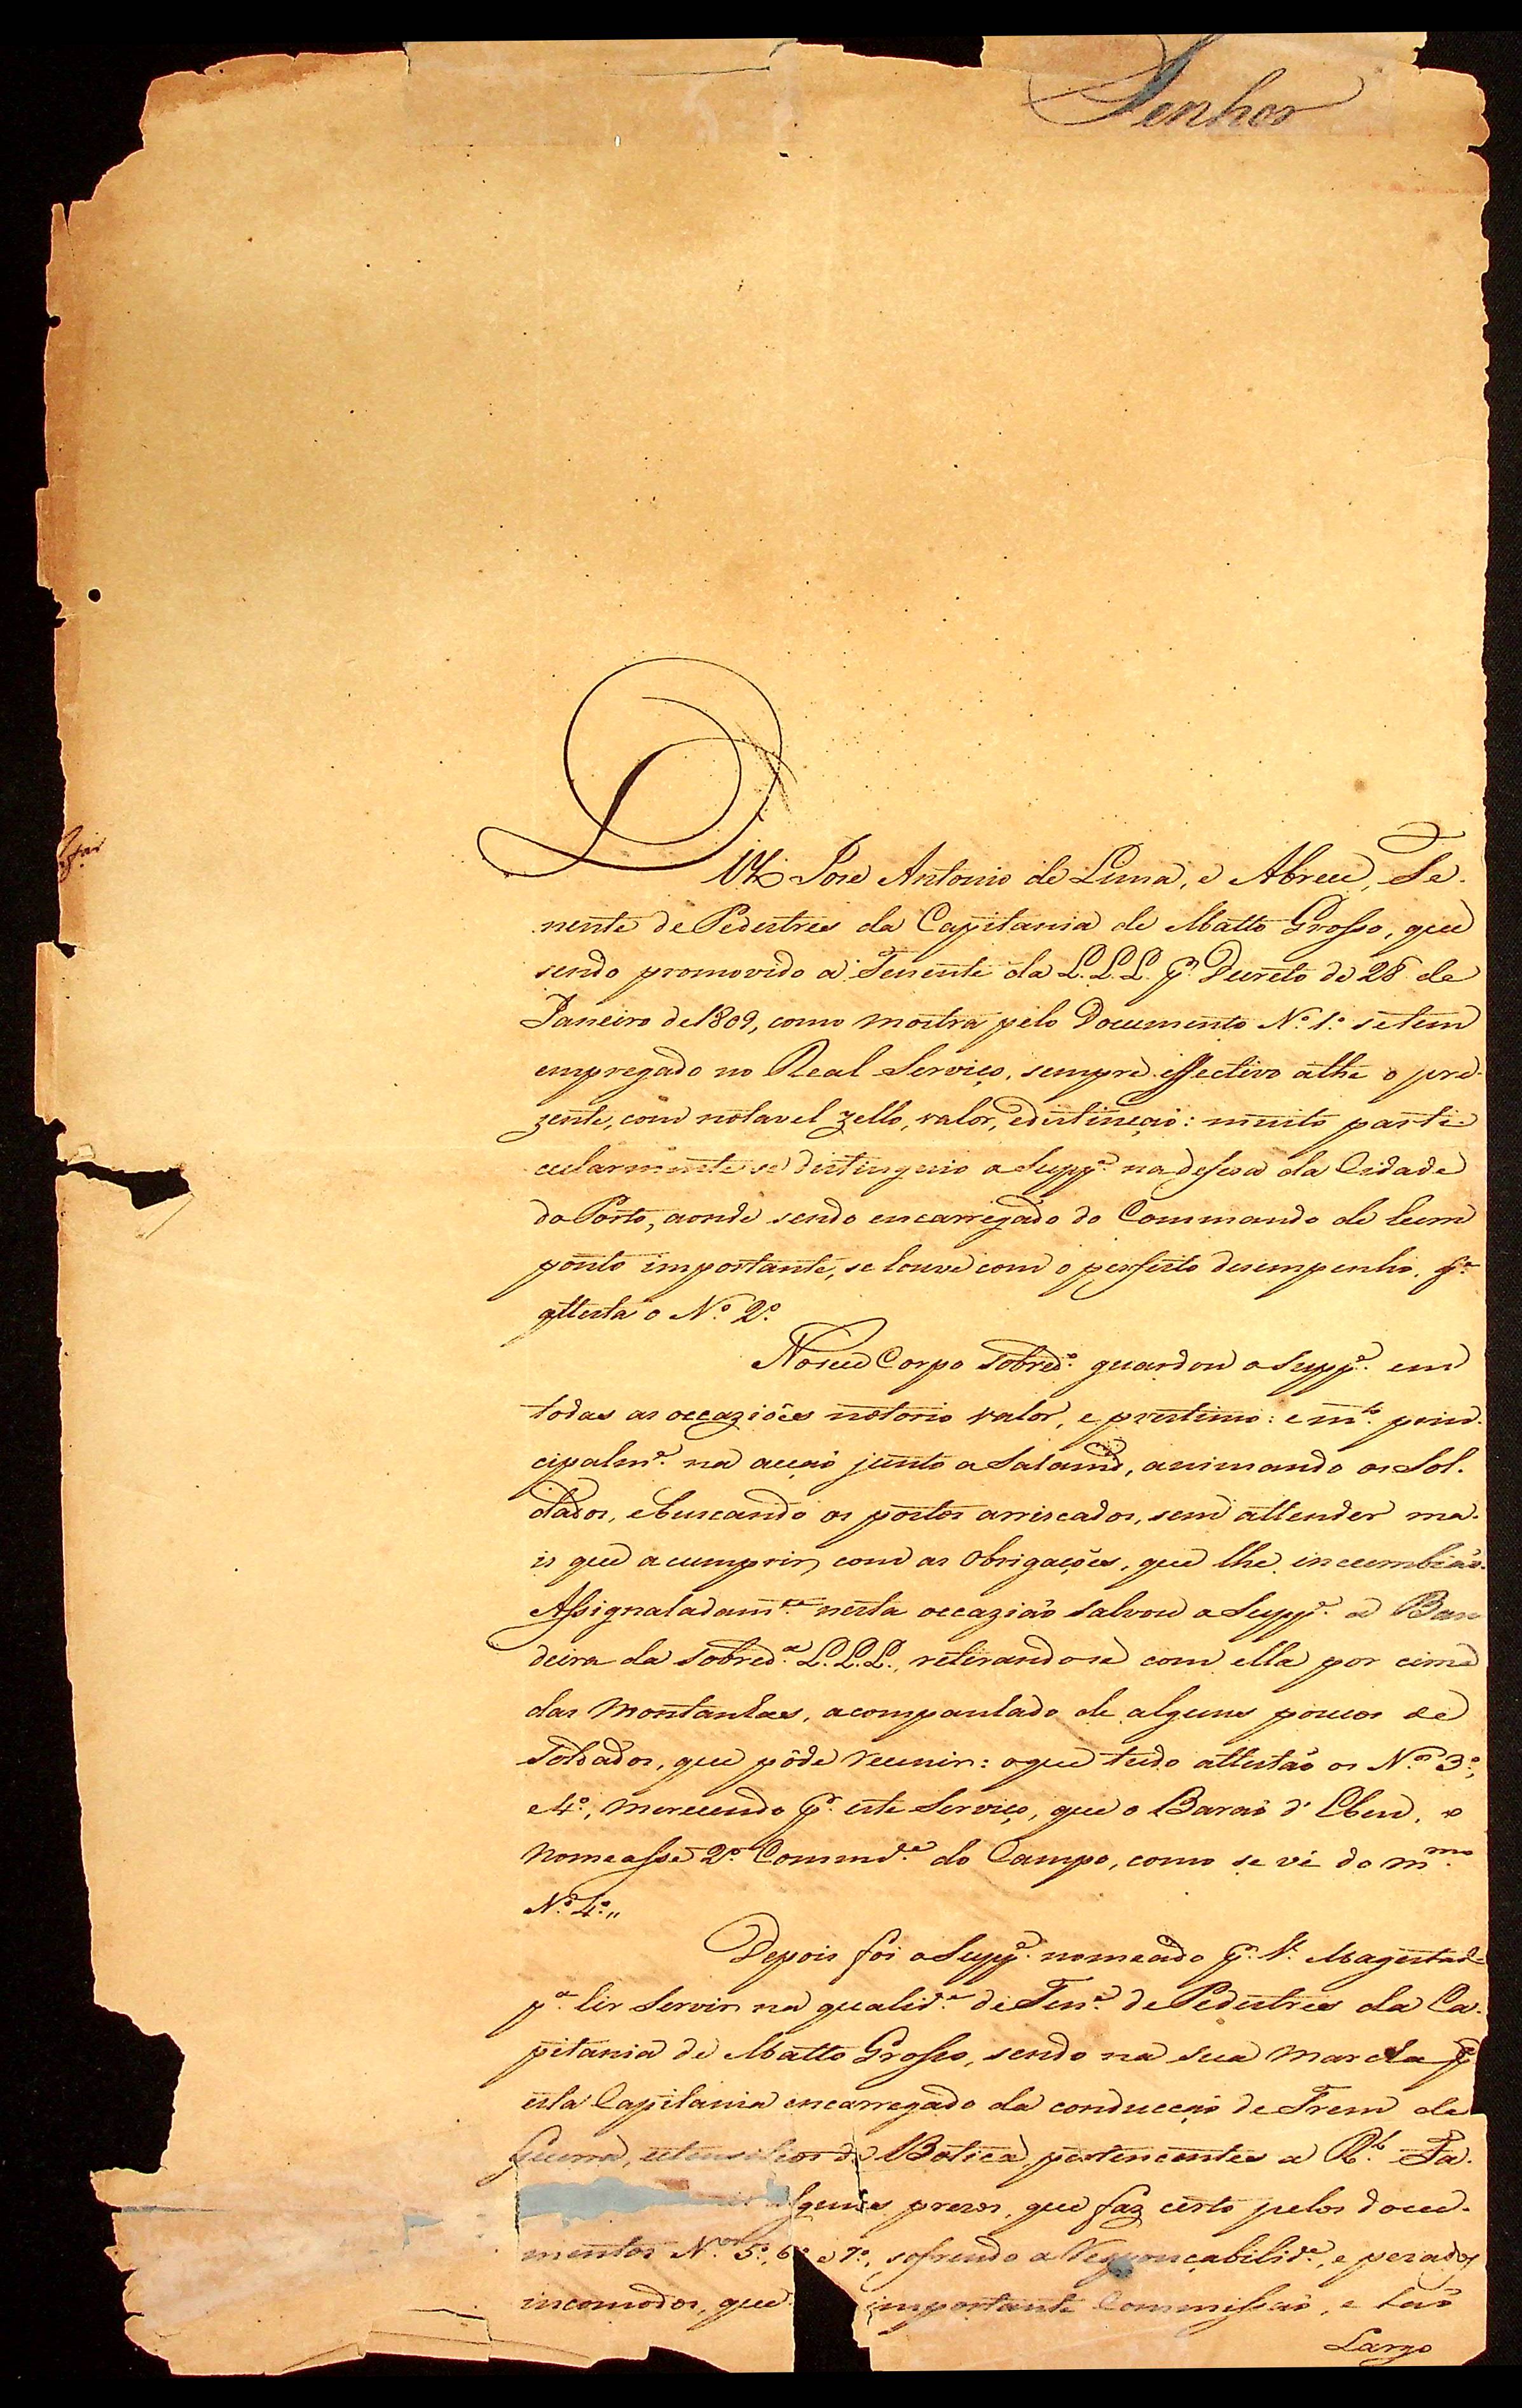 Senhor
Diz Jose Antonio de Lima, e Abreu, Te-
nente de Pedestres da Capitania de Matto Grosso, que
sendo promovido a Tenente da L.L.L. pr. Decreto de 28 de
Janeiro de 1809, como mostra pelo Documento N.º 1.º se tem
empregado no Real Serviço, sempre effectivo athe o pre-
zente, com notavel zello, valor, e distincção: muito parti-
cularmente se distinguio o Supp.e na defesa da Cidade
do Porto, aonde sendo encarregado do Commando de hum
ponto importante, se houve com o perfeito desempenho, q.e
attesta o N.º 2.º
No seu Corpo sobred.o guardou o Supp.e em
todas as occaziões notorio valor, e prestimo: e m.to prin-
cipalm.e na acção junto a Salamd.e, animando os Sol-
dados, e buscando os postos arriscados, sem attender ma-
is que a cumprir com as obrigações, que lhe incumbião.
Assignaladam.te nesta occazião salvou o Supp.e a Ban
deira da sobred.a L.L.L., retirando-se com ella por cima
das Montanhas, acompanhado de alguns poucos de
Soldados, que pôde reunir: o que tudo attestão os N.os 3.º,
e 4.º, merecendo pr. este Serviço, que o Barão d'Eben, o
nomeasse 2.º Commd.e do Campo, como se vê do m.mo
N.º 4.º,,
Depois foi o Supp.e nomeado pr. V. Magestad.e
p.a hir servir na qualid.e de Ten.e de Pedestres da Ca-
pitania de Matto Grosso, sendo na sua marcha pa.
esta Capitania encarregado da conducção de Trem de
Guerra, utensilios de Botica, pertencentes a R.l Fa-
alguns prezos, que faz certo pelos docu-
mentos N.os 5.º, 6.º e 7.º, sofrendo a Responçabilid.e, e pezados
incomodos, que importante Commissão, e tão
Largo